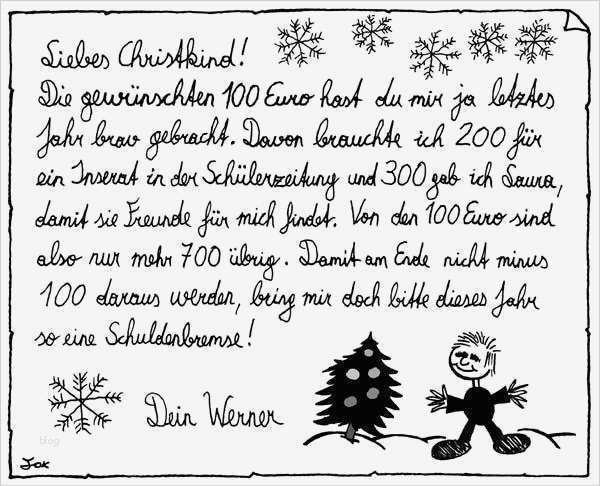 Liebes Christkind!
Die gewünschten 100 Euro hast du mir ja letztes
Jahr brav gebracht. Davon brauchte ich 200 für
ein Inserat in der Schülerzeitung und 300 gab ich Laura,
damit sie Freunde für mich findet. Von den 100 Euro sind
also nur mehr 700 übrig. Damit am Ende nicht minus
100 daraus werden, bring mir doch bitte dieses Jahr
so eine Schuldenbremse!
Dein Werner
blog
Jox